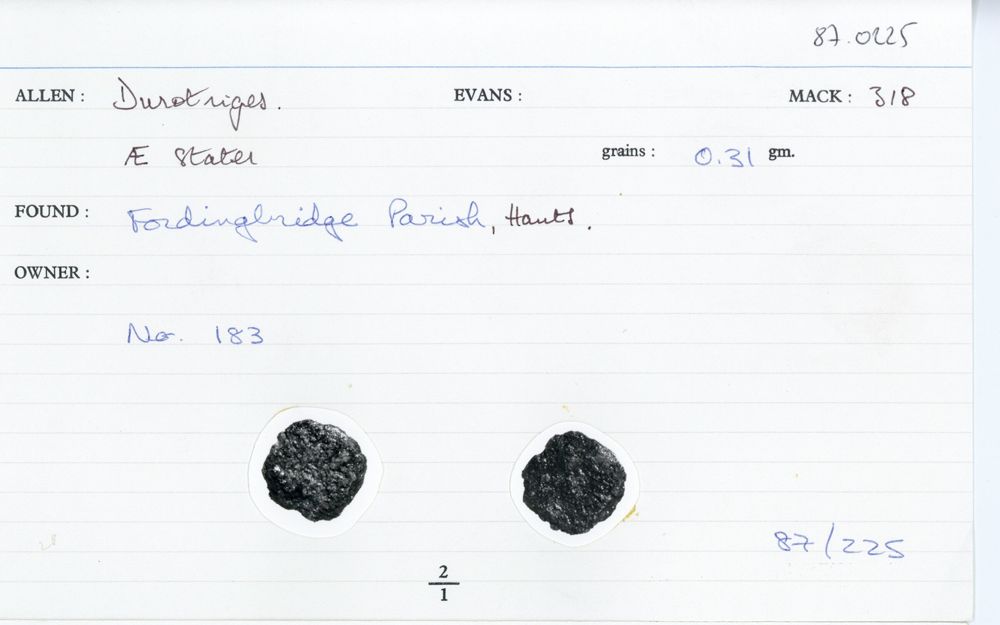 87.0225
ALLEN : Durotriges. EVANS : MACK : 318
Æ Stater grains : 0.31 gm.
FOUND : Fordingbridge Parish, Hants.
OWNER :
No. 183
87/225
2
1